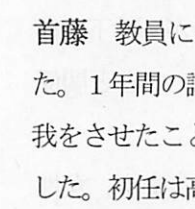 首藤　教員に
た。１年間の
我をさせたこ
した。初任は